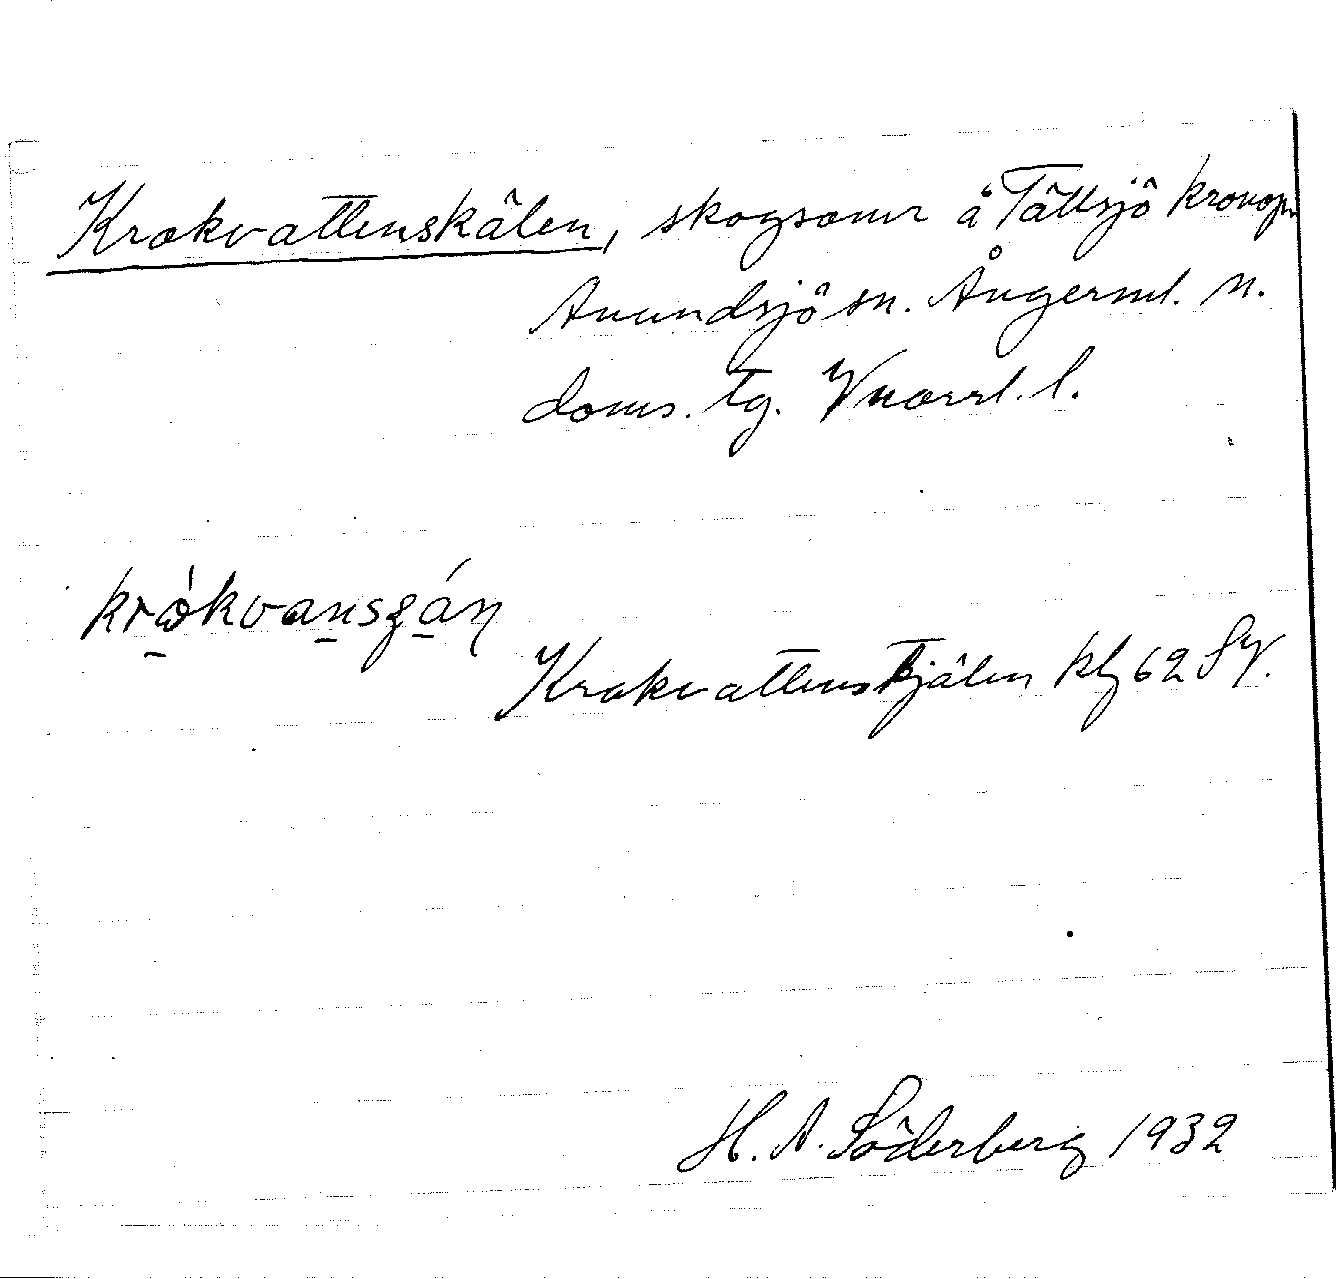 Krokvattenskälen, skogsomr å Tällsjö kronop.
Anundsjö sn. Ångerml. n.
doms. tg. Vnorrl. l.
Krokvattenskjälen kbl 62 Sy.
H. A. Söderberg 1932